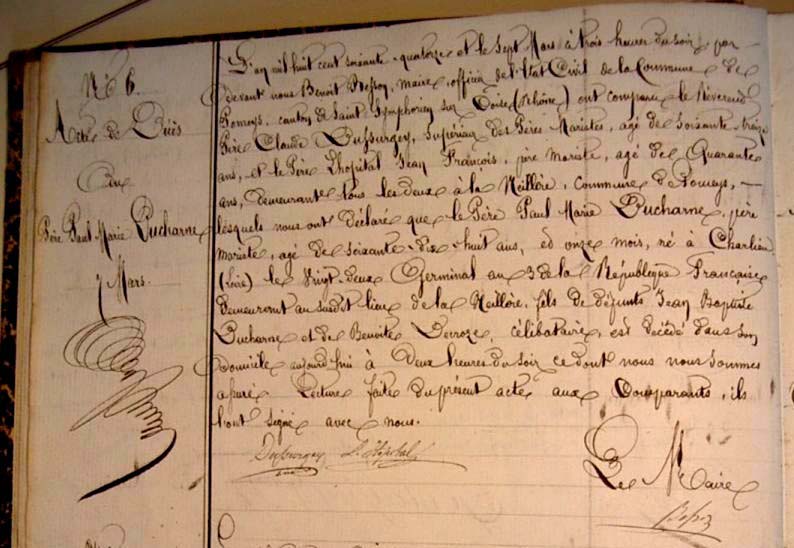 N° 6.
Acte de Décès
du
Père Paul Marie Ducharne
7 Mars.
L'an mil huit cent soixante-quatorze et le sept Mars à trois heures du soir, par-
devant nous Benoît Besson, maire, officier de l'Etat Civil de la Commune de
Pomeys, canton de Saint Symphorien sur Coise (Rhône) ont comparu le Révérend
Père Claude Dussurgey, Supérieur des Pères Maristes, agé de soixante-treize
ans, et le Père Lhopital Jean François, père mariste, agé de Quarante
ans, demeurants tous les deux à la Neillère, commune de Pomeys, —
lesquels nous ont déclaré que le Père Paul Marie Ducharne, père
mariste, agé de soixante-dix-huit ans, et onze mois, né à Charlieu
(Loire) le Vingt-deux Germinal an 3 de la République Française
demeurant au susdit lieu de la Neillère, fils de défunts Jean Baptiste
Ducharne et de Benoîte Deroze, célibataire, est décédé dans son
domicile aujourd'hui à Deux heures du soir ce dont nous nous sommes
assuré. Lecture faite du présent acte aux Comparants, ils
l'ont signé avec nous.
Dussurgey L'hopital
Le Maire
Besson